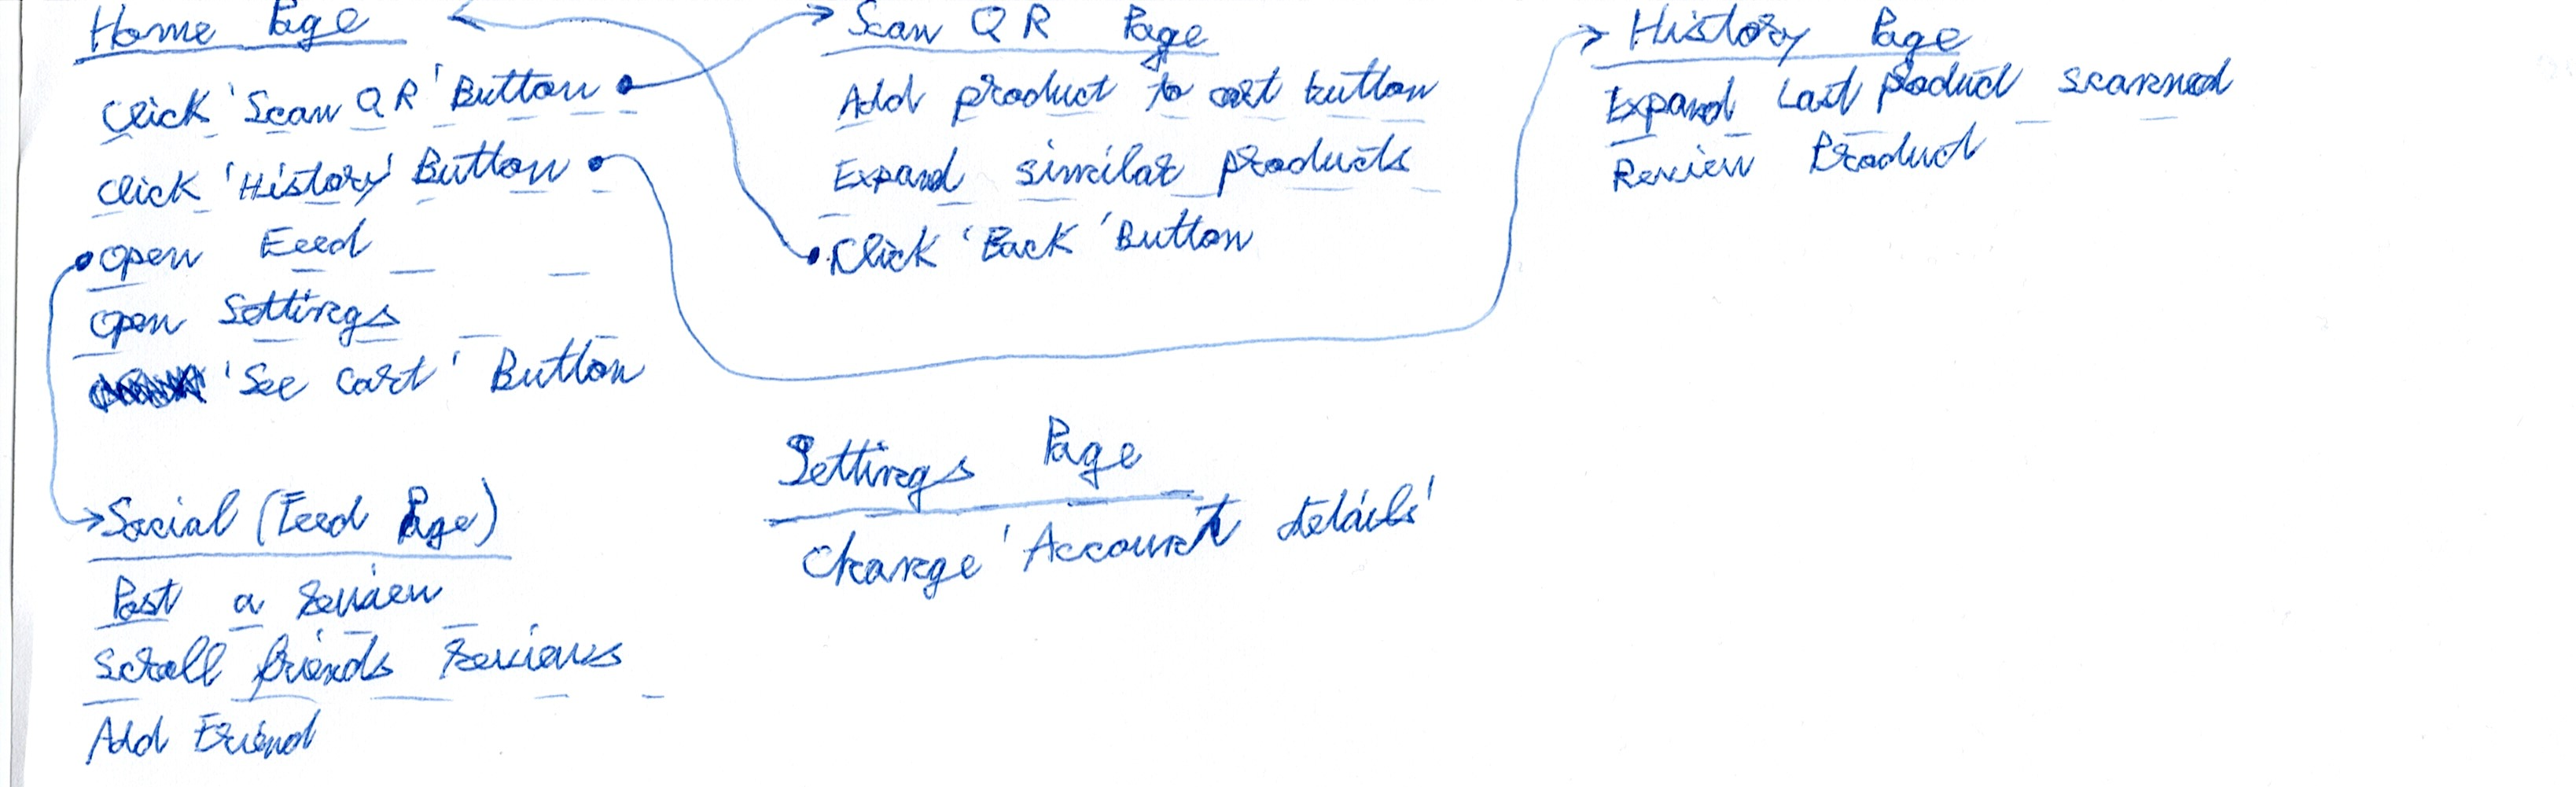 Home Page
Click 'Scan QR' Button
Click 'History' Button
Open Feed
Open Settings
'See Cart' Button
Scan QR Page
Add product to cart button
Expand similar products
Click 'Back' Button
History Page
Expand Last product scanned
Review Product
Social (Feed Page)
Post a review
Scroll friends reviews
Add Friend
Settings Page
Change 'Account details'